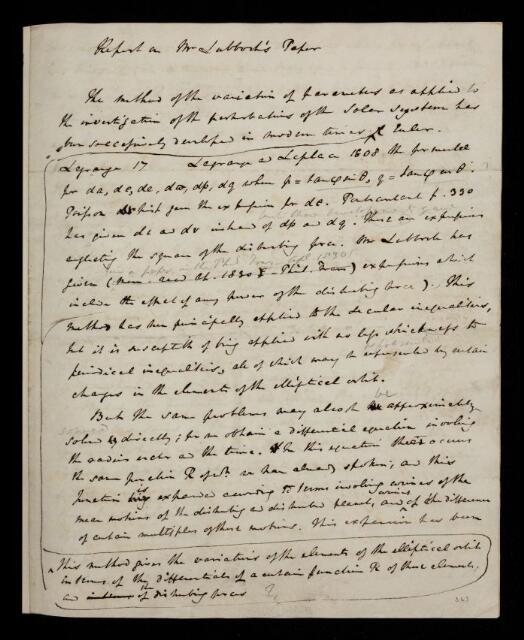 Report on Mr Lubbock's Paper
The method of the variation of parameters as applied to
the investigation of the perturbations of the solar system has
been successively developed in modern times by Euler.
Lagrange 17 Lagrange & Laplace in 1808 the formulæ
for da, de, dc, dϖ, dp, dq when p = tan φ sin θ, q = tan φ cos θ.
Poisson first gave the expression for dc. Pontécoulant p. 330
has given dι and dν instead of dp and dq. These are expressions
neglecting the square of the disturbing force. Mr Lubbock has
given (Mem. read 1830 Phil. Trans) expressions which
include the effect of any power of the disturbing force). This
method has been principally applied to the secular inequalities,
but it is susceptible of being applied with no less strictness to
periodical inequalities, all of which may be represented by certain
changes in the elements of the elliptical orbit.
But the same problems may also be approximately
solved directly; for we obtain a differential equation involving
the radius vector and the time. In this equation there occurs
the same function R of which we have already spoken; and this
function is expanded according to terms involving cosines of the
mean motions of the disturbing & disturbed planets, and cosines of the difference
of certain multiples of those motions. This expansion has been
This method gives the variations of the elements of the elliptical orbit
in terms of the differentials of a certain function R of those elements,
and disturbing forces